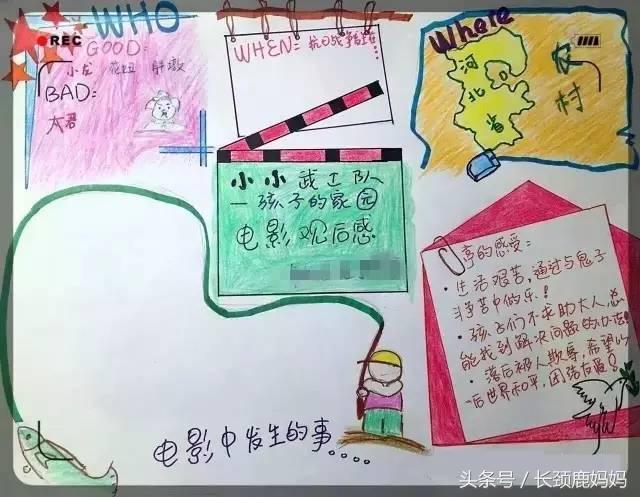 REC
WHO
GOOD:
小龙 花妞 胖墩
BAD:
太君
WHEN: 抗日战争时
Where
河
北
省
农
村
小小武工队
—孩子的家园
电影观后感
事的感受:
·生活艰苦,通过与鬼子
斗争苦中作乐!
·孩子们不求助大人,总
能找到解决问题的办法!
·落后被人欺辱,希望以
后世界和平,团结友爱!
电影中发生的事....
头条号/长颈鹿妈妈